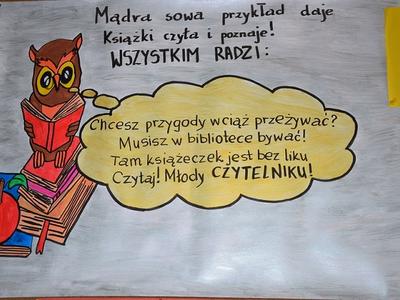 Mądra sowa przykład daje
Książki czyta i poznaje!
WSZYSTKIM RADZI:
Chcesz przygody wciąż przeżywać?
Musisz w bibliotece bywać!
Tam książeczek jest bez liku
Czytaj! Młody CZYTELNIKU!